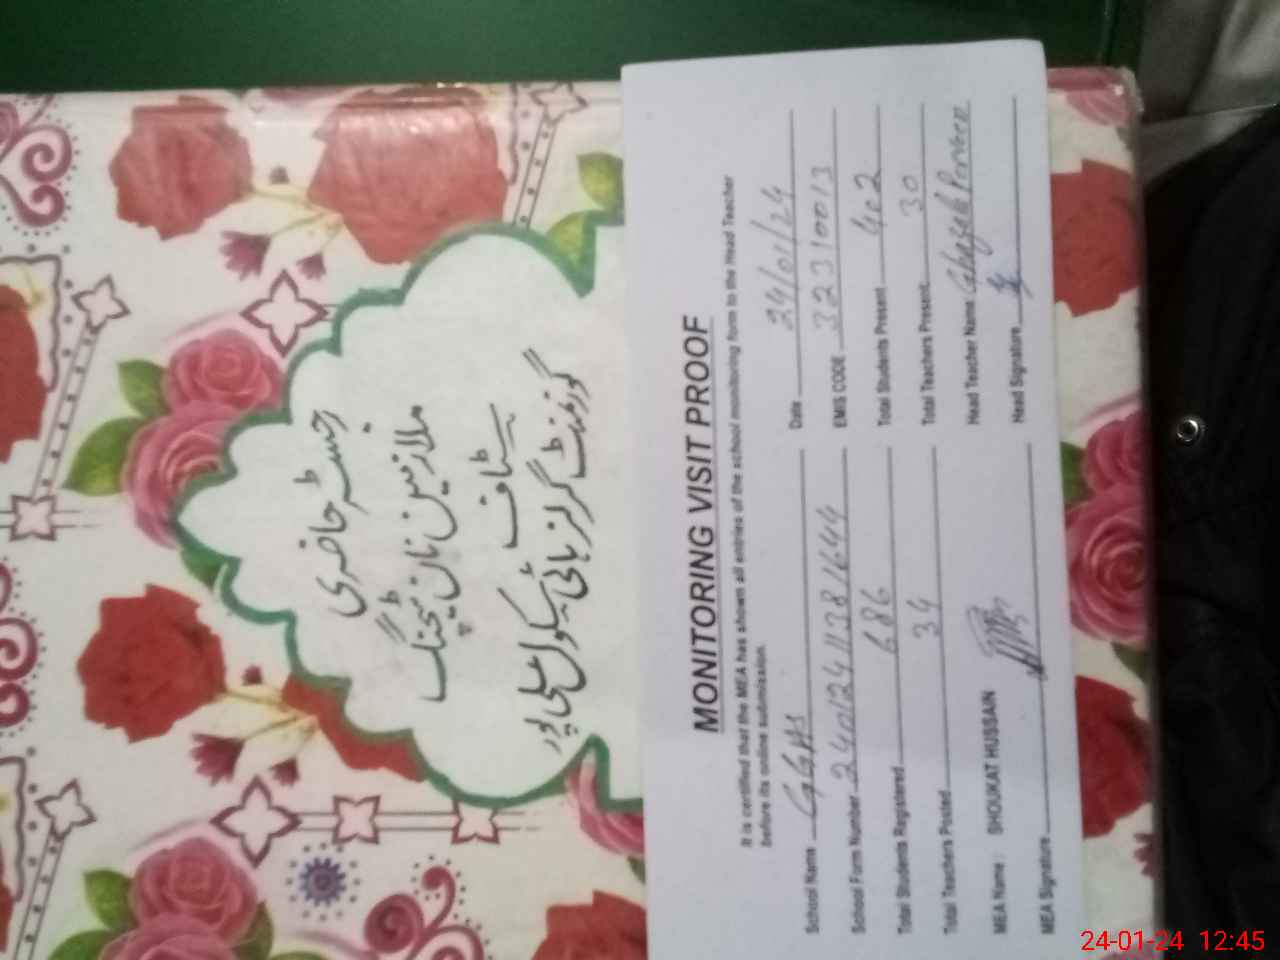 رجسٹر حاضری
ملازمین نان ٹیچنگ
سٹاف
گورنمنٹ گرلز ہائی سکول علی پور
MONITORING VISIT PROOF
It is certified that the MEA has shown all entries of the school monitoring form to the Head Teacher
before its online submission.
School Name GGHS Date 24/01/24
School Form Number 24012411381644 EMIS CODE 32310013
Total Students Registered 686 Total Students Present 402
Total Teachers Posted 34 Total Teachers Present 30
MEA Name: SHOUKAT HUSSAIN Head Teacher Name Perveen
MEA Signature Head Signature
24-01-24 12:45